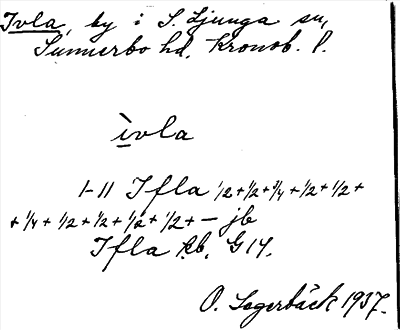 Ivla, by i S. Ljunga sn,
Sunnerbo hd, Kronob. l.
ìvla
1-11 Ifla 1/2 + 1/2 + 3/4 + 1/2 + 1/2 +
+ 1/4 + 1/2 + 1/2 + 1/2 + 1/2 + - jb
Ifla kb. G 14.
O. Sagerbäck 1937.